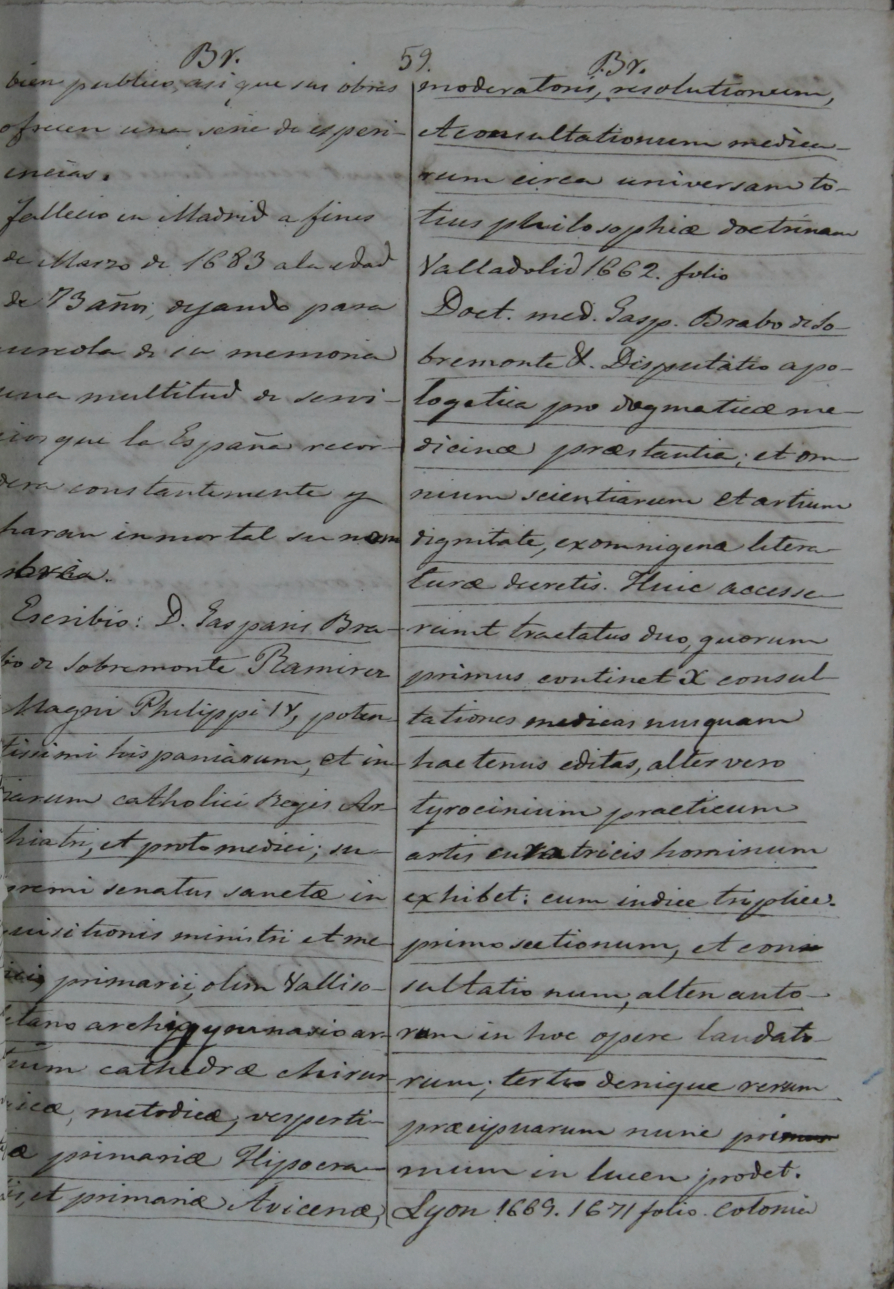 Br. 59. Br.
bien publico, asi que sus obras
ofrecen una serie de esperi-
encias.
fallecio en Madrid a fines
de Marzo de 1683 a la edad
de 73 años, dejando para
aureola de su memoria
una multitud de servi-
cios que la España recor-
dera constantemente y
haran inmortal su nom
bre.
Escribio: D. Gasparis Bra-
bo de Sobremonte Ramirez
Magni Philippi IV, poten-
tissimi hispaniarum, et in-
diarum catholici Regis Ar-
hiatri, et proto medici; su-
premi senatus sanctæ in
quisitionis ministri et me-
dicis primarii, olim Valliso-
letano archigymnasio ar-
tium cathedræ chirur
gicæ, metodicæ, vesperti-
æ primariæ Hipocra-
tis, et primariæ Avicenæ,
moderatoris, resolutioneum,
et consultationum medica-
rum circa universam to-
tius philosophiæ doctrinam
Valladolid 1662. folio
Doct. med. Gasp. Brabo de So-
bremonte &. Disputatio apo-
logetica pro dogmaticæ me-
dicinæ præstantia; et om
nium scientiarum et artium
dignitate, ex omnigenæ litera-
turæ decretis. Huic accesse-
runt tractatus duo, quorum
primus continet X consul-
tationes medicas nusquam
hactenus editas, alter vero
tyrocinium practicum
artis curatricis hominum
exhibet: cum indice triplice.
primo sectionum, et con
sultationum, alteri auto-
rum in hoc opere laudato-
rum; tertio denique rerum
præcipuarum nunc pri
mum in lucen prodet.
Lyon 1669. 1671 folio. Colonia